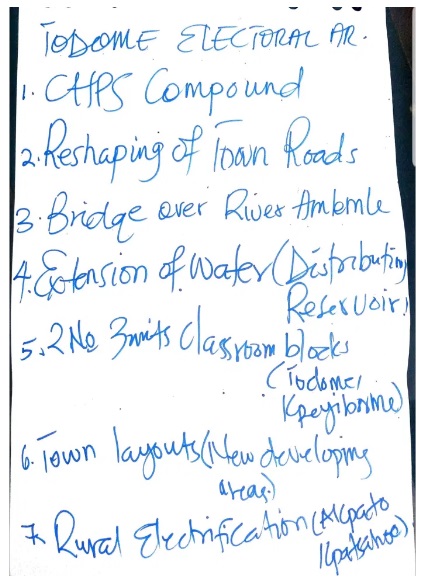 TODOME ELECTORAL AR.
1. CHPS Compound
2. Reshaping of Town Roads
3. Bridge over River
4. Extension of Water (Distributing
Reservoir)
5. 2 No 3units Classroom blocks
(Todome,
6. Town layouts (New developing
areas)
7. Rural Electrification